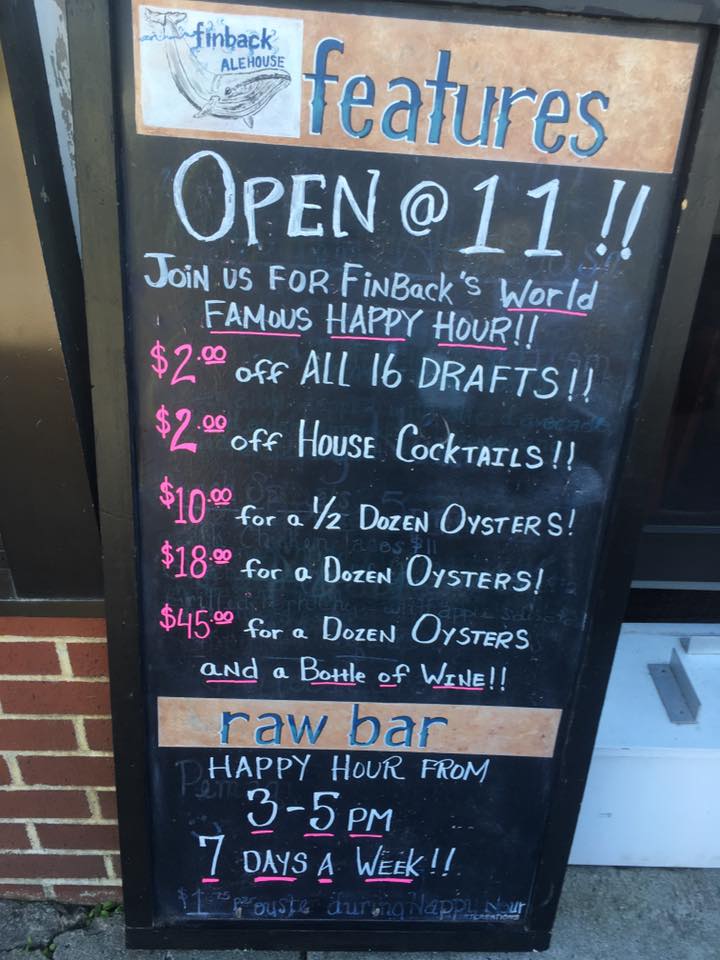 finback
ALEHOUSE
features
OPEN @ 11 !!
JOIN US FOR FINBACK'S World
FAMOUS HAPPY HOUR!!
$2.00 off ALL 16 DRAFTS!!
$2.00 off HOUSE COCKTAILS!!
$10.00 for a 1/2 DOZEN OYSTERS!
$18.00 for a DOZEN OYSTERS!
$45.00 for a DOZEN OYSTERS
and a Bottle of WINE!!
raw bar
HAPPY HOUR FROM
3-5 PM
7 DAYS A WEEK!!
$1.75 per oyster during Happy Hour